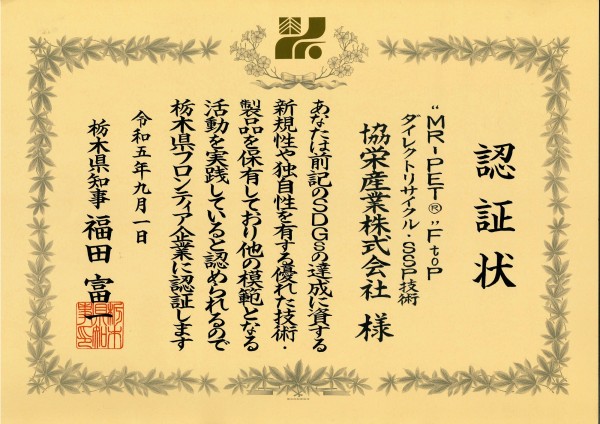 認証状
“MR-PET®”FtoP
ダイレクトリサイクル・SSP技術
協栄産業株式会社 様
あなたは前記のSDGsの達成に資する
新規性や独自性を有する優れた技術・
製品を保有しており他の模範となる
活動を実践していると認められるので
栃木県フロンティア企業に認証します
令和五年九月一日
栃木県知事 福田富一